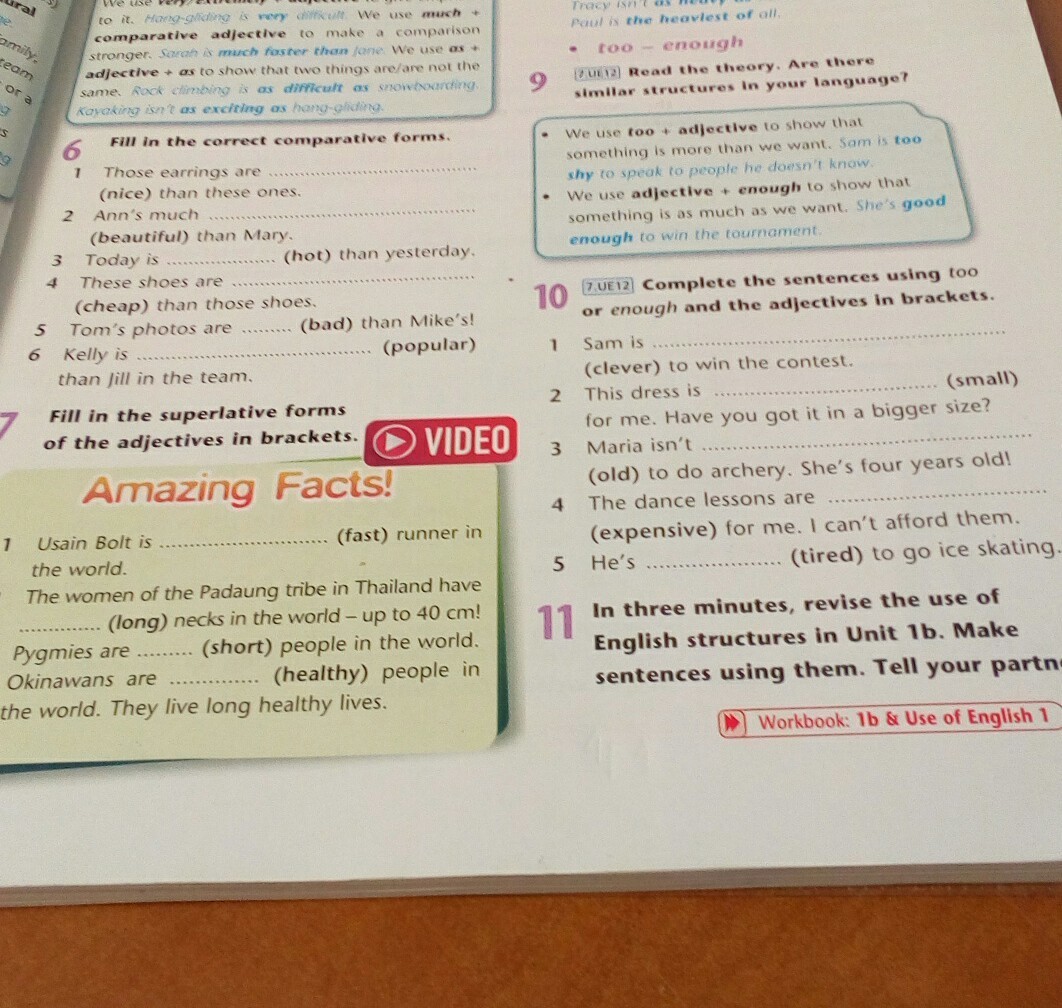 ural
e.
amily,
team
or a
g
s
g
We use very/extremely
to it. Hang-gliding is very difficult. We use much +
comparative adjective to make a comparison
stronger. Sarah is much faster than Jane. We use as +
adjective + as to show that two things are/are not the
same. Rock climbing is as difficult as snowboarding.
Kayaking isn't as exciting as hang-gliding.
6 Fill in the correct comparative forms.
1 Those earrings are ....................
(nice) than these ones.
2 Ann's much ....................
(beautiful) than Mary.
3 Today is .................... (hot) than yesterday.
4 These shoes are ....................
(cheap) than those shoes.
5 Tom's photos are ......... (bad) than Mike's!
6 Kelly is .................... (popular)
than Jill in the team.
7 Fill in the superlative forms
of the adjectives in brackets.
VIDEO
Amazing Facts!
1 Usain Bolt is .................... (fast) runner in
the world.
The women of the Padaung tribe in Thailand have
............. (long) necks in the world – up to 40 cm!
Pygmies are ......... (short) people in the world.
Okinawans are .............. (healthy) people in
the world. They live long healthy lives.
Tracy isn't as heavy
Paul is the heaviest of all.
• too – enough
9 7.UE12 Read the theory. Are there
similar structures in your language?
• We use too + adjective to show that
something is more than we want. Sam is too
shy to speak to people he doesn't know.
• We use adjective + enough to show that
something is as much as we want. She's good
enough to win the tournament.
10 7.UE12 Complete the sentences using too
or enough and the adjectives in brackets.
1 Sam is ....................
(clever) to win the contest.
2 This dress is .................... (small)
for me. Have you got it in a bigger size?
3 Maria isn't ....................
(old) to do archery. She's four years old!
4 The dance lessons are ....................
(expensive) for me. I can't afford them.
5 He's .................... (tired) to go ice skating.
11 In three minutes, revise the use of
English structures in Unit 1b. Make
sentences using them. Tell your partn
Workbook: 1b & Use of English 1